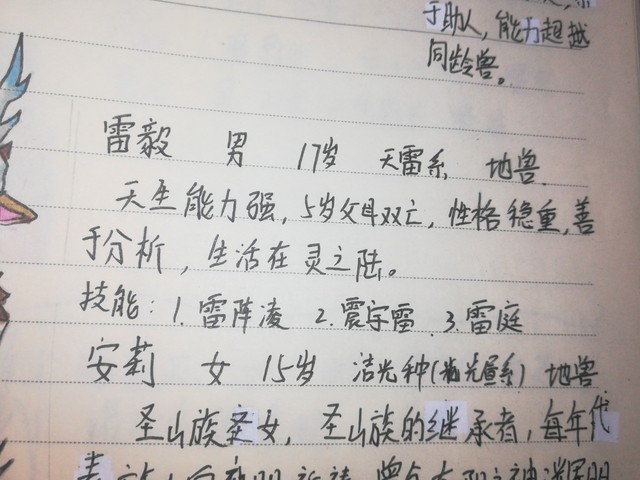 于助人，能力超越
同龄兽。
雷毅 男 17岁 天雷系 地兽
天生能力强，5岁父母双亡，性格稳重，善
于分析，生活在灵之陆。
技能：1.雷阵凌 2.震宇雷 3.雷庭
安莉 女 15岁 洁光种(光系) 地兽
圣山族圣女，圣山族的继承者，每年代